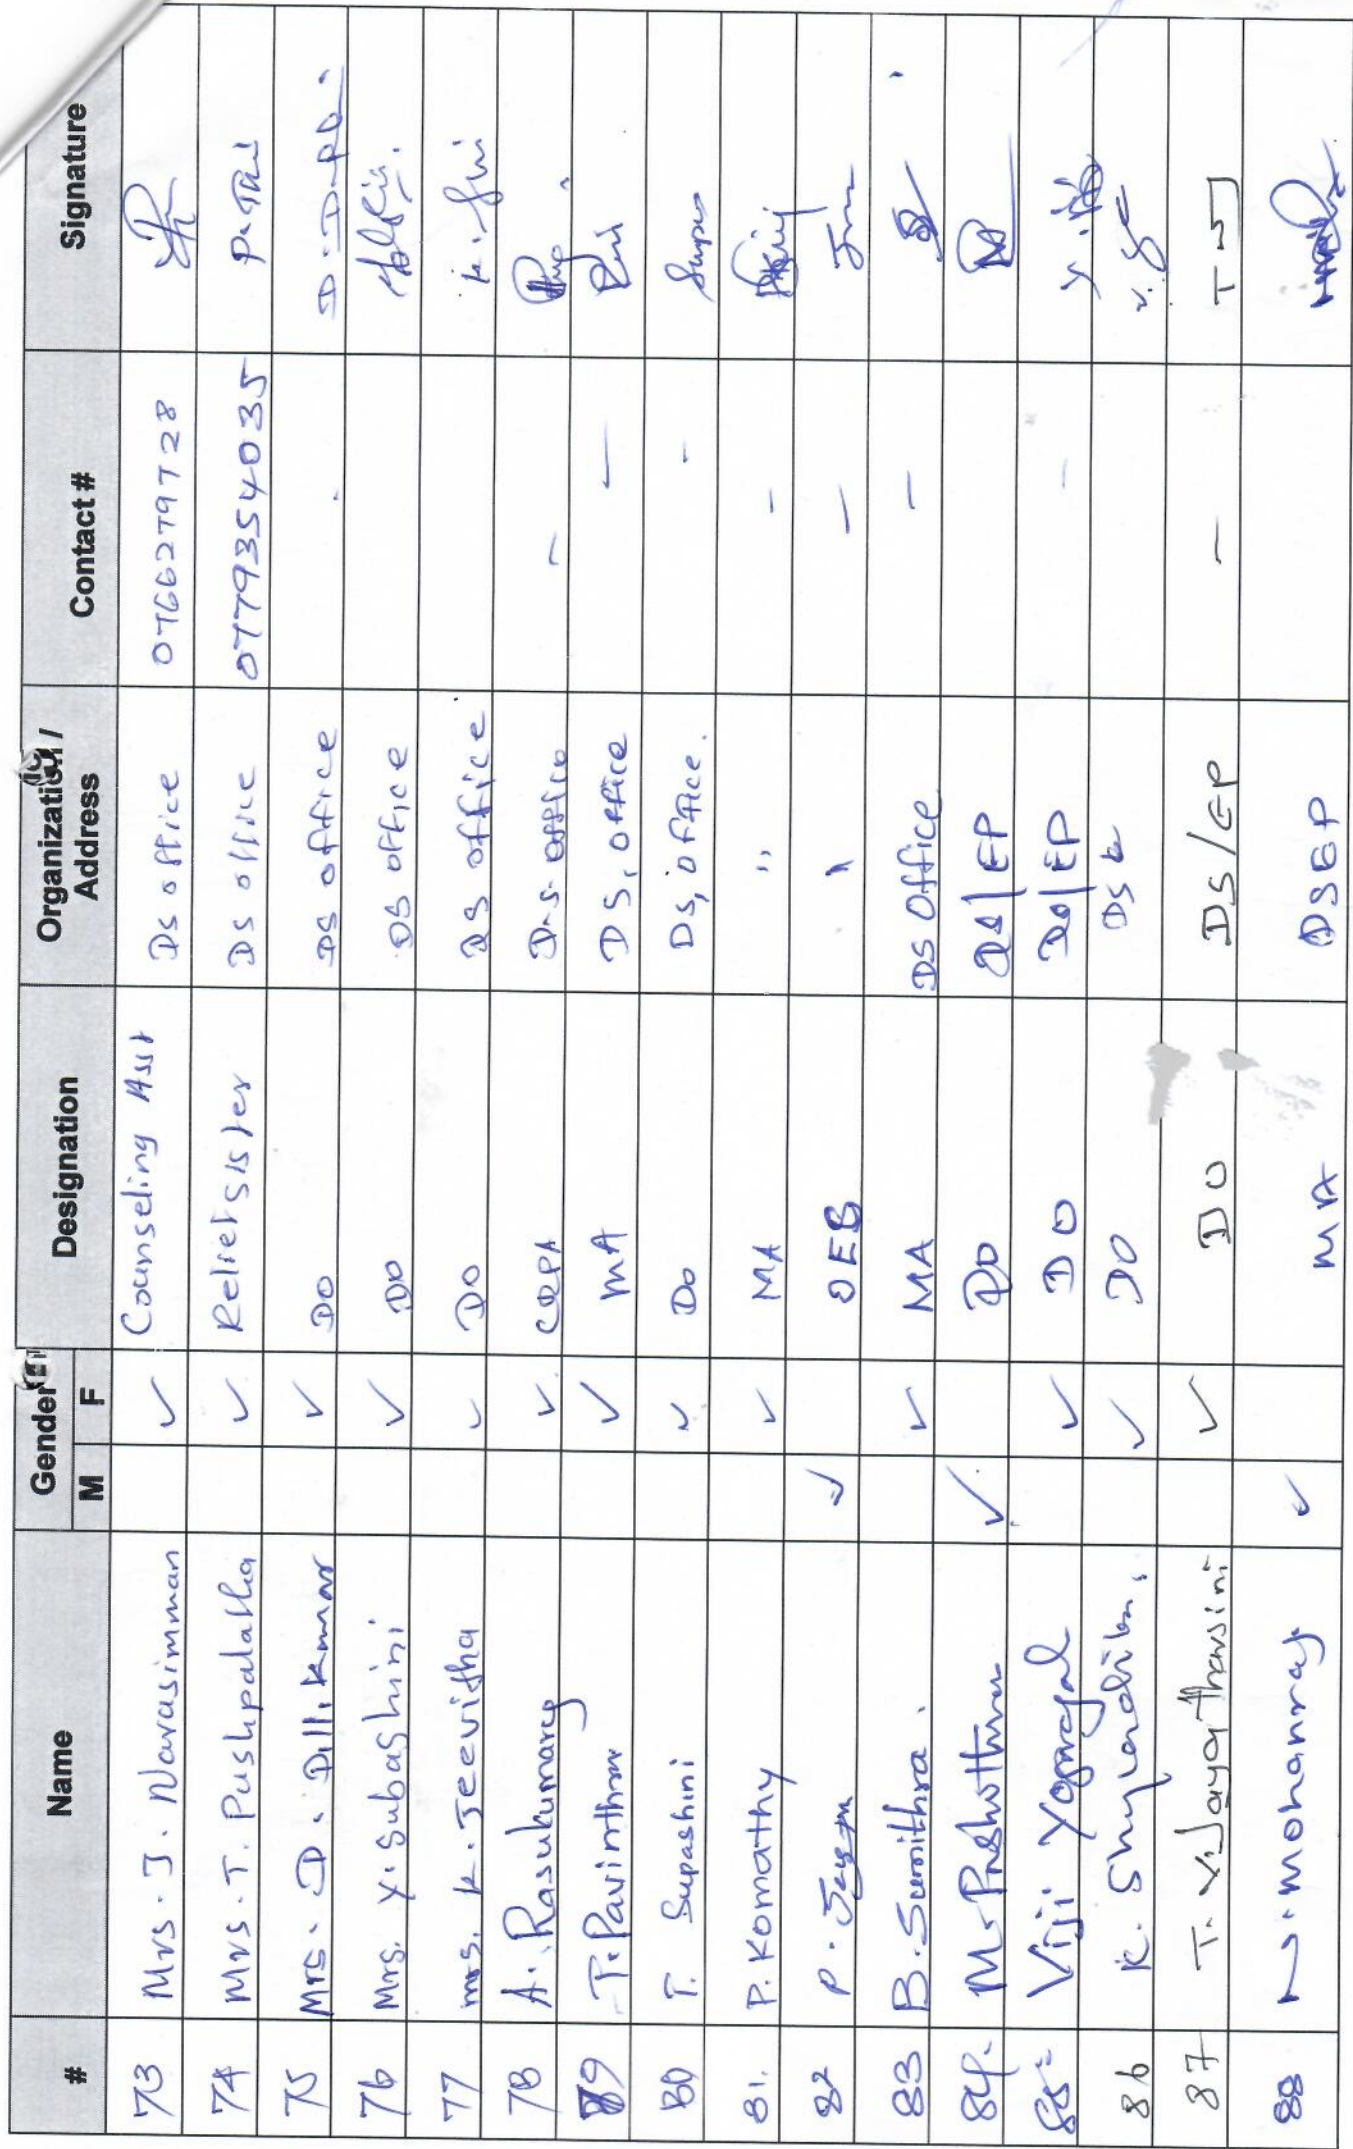 # Name Gender M F Designation Organization / Address Contact # Signature
73 Mrs. J. Narasimman ✓ Counseling Asst DS office 0766279728
74 Mrs. T. Pushpalatha ✓ Relief sister DS office 0779354035
75 Mrs. D. Dillikumar ✓ DO DS office
76 Mrs. Y. Subashini ✓ DO DS office
77 mrs. K. Jeevitha ✓ DO DS office
78 A. Rasukumarey ✓ DS office -
79 T. Pavinthra ✓ MA DS, office -
80 T. Supashini ✓ Do Ds, office. -
81. P. Komathy ✓ MA " -
82 P. ✓ OES " -
83 B. Sumithra. ✓ MA DS Office -
84. ✓ DO DS/EP
85 Viji Yogarajah ✓ DO DS/EP -
86 K. ✓ DO DS
87 T. Vijayatharsini ✓ DO DS/EP -
88 N. Mohanraj ✓ MA DSEP